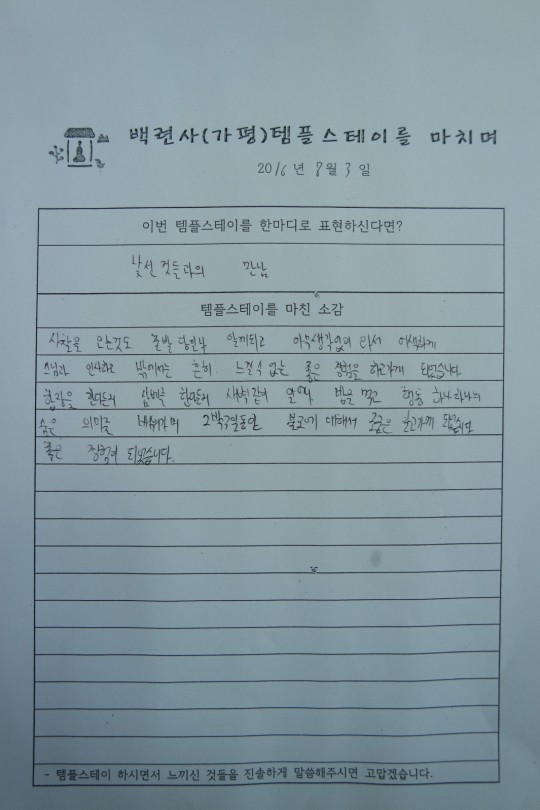 백련사(가평)템플스테이를 마치며
2016년 8월 3일
이번 템플스테이를 한마디로 표현하신다면?
낯선것들과의 만남
템플스테이를 마친 소감
사찰을 오는것도 출발 당일날 알게되고 아무생각없이 와서 어색하게
스님과 인사하고 밖에서는 흔히 느낄수 없는 좋은 경험을 하고가게 되었습니다.
합장을 한다든지 삼배를 한다든지 새벽같이 일어나 밥을 먹고 행동 하나하나의
숨은 의미를 배워가며 2박3일동안 불교에 대해서 조금은 알고가게 됐습니다
좋은 경험이 되었습니다.
- 템플스테이 하시면서 느끼신 것들을 진솔하게 말씀해주시면 고맙겠습니다.